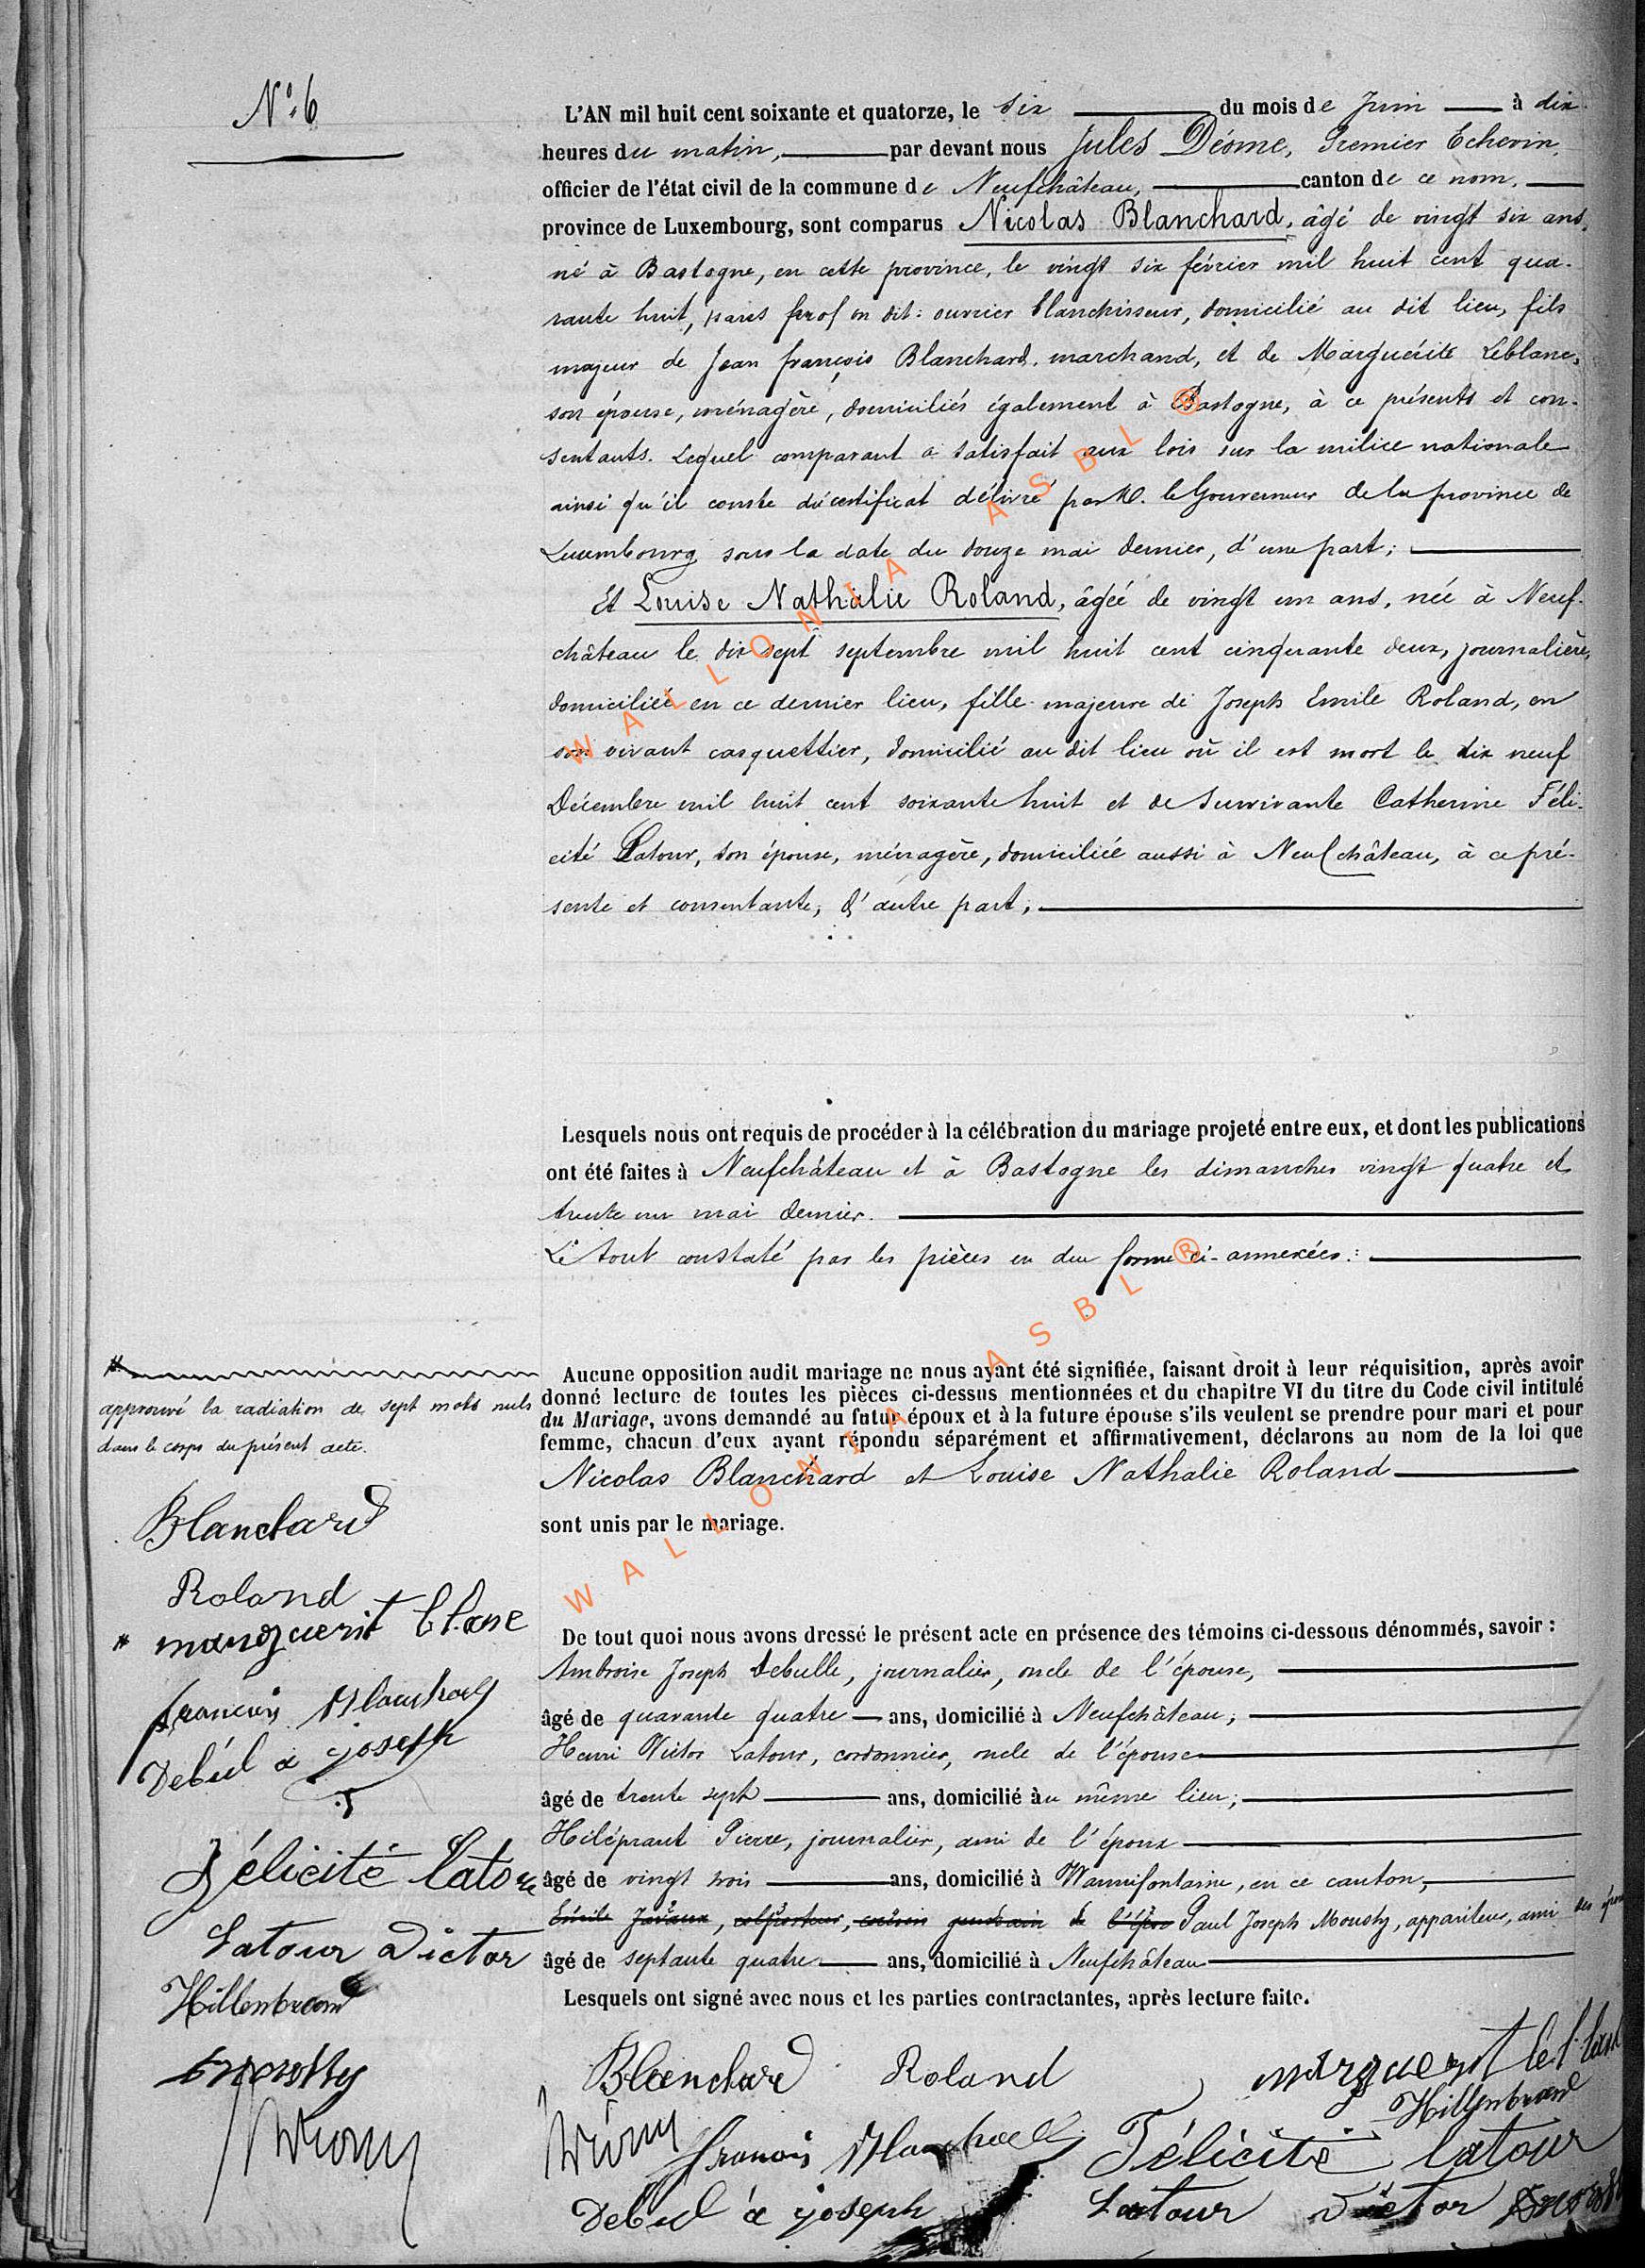 N° 6
L'AN mil huit cent soixante et quatorze, le six du mois de Juin à dix
heures du matin, par devant nous Jules Déome, Premier Echevin,
officier de l'état civil de la commune de Neufchâteau, canton de ce nom,
province de Luxembourg, sont comparus Nicolas Blanchard, âgé de vingt six ans,
né à Bastogne, en cette province, le vingt six février mil huit cent qua-
rante huit, ouvrier blanchisseur, domicilié au dit lieu, fils
majeur de Jean françois Blanchard, marchand, et de Marguérite Leblanc,
son épouse, ménagère, domiciliés également à Bastogne, à ce présents et con-
sentants. Lequel comparant a satisfait aux lois sur la milice nationale
ainsi qu'il conste du certificat délivré par M. le Gouverneur de la province de
Luxembourg sous la date du douze mai dernier, d'une part;
Et Louise Nathalie Roland, âgée de vingt un ans, née à Neuf-
château le dix sept septembre mil huit cent cinquante deux, journalière,
domiciliée en ce dernier lieu, fille majeure de Joseph Emile Roland, en
son vivant casquettier, domicilié au dit lieu où il est mort le dix neuf
Décembre mil huit cent soixante huit et de survivante Catherine Féli-
cité Latour, son épouse, ménagère, domiciliée aussi à Neufchâteau, à ce pré-
sente et consentante, d'autre part;
Lesquels nous ont requis de procéder à la célébration du mariage projeté entre eux, et dont les publications
ont été faites à Neufchâteau et à Bastogne les dimanches vingt quatre et
trente un mai dernier.
Le tout constaté par les pièces en due forme ci-annexées:
Aucune opposition audit mariage ne nous ayant été signifiée, faisant droit à leur réquisition, après avoir
donné lecture de toutes les pièces ci-dessus mentionnées et du chapitre VI du titre du Code civil intitulé
du Mariage, avons demandé au futur époux et à la future épouse s'ils veulent se prendre pour mari et pour
femme, chacun d'eux ayant répondu séparément et affirmativement, déclarons au nom de la loi que
Nicolas Blanchard et Louise Nathalie Roland
sont unis par le mariage.
De tout quoi nous avons dressé le présent acte en présence des témoins ci-dessous dénommés, savoir :
Ambroise Joseph Debulle, journalier, oncle de l'épouse,
âgé de quarante quatre ans, domicilié à Neufchâteau;
Henri Victor Latour, cordonnier, oncle de l'épouse
âgé de trente sept ans, domicilié au même lieu;
Pierre, journalier, ami de l'époux
âgé de vingt trois ans, domicilié à Warmifontaine, en ce canton,
Paul Joseph Mousty, appariteur, ami des
âgé de septante quatre ans, domicilié à Neufchâteau
Lesquels ont signé avec nous et les parties contractantes, après lecture faite.
approuvé la radiation de sept mots nuls
dans le corps du présent acte.
Blanchard
Roland
francois
joseph
Félicité latour
Latour Victor
Hillenbrand
Blanchard Roland
Hillenbrand
francois
Félicité latour
joseph
Latour Victor
WALLONIA ASBL ®
WALLONIA ASBL ®